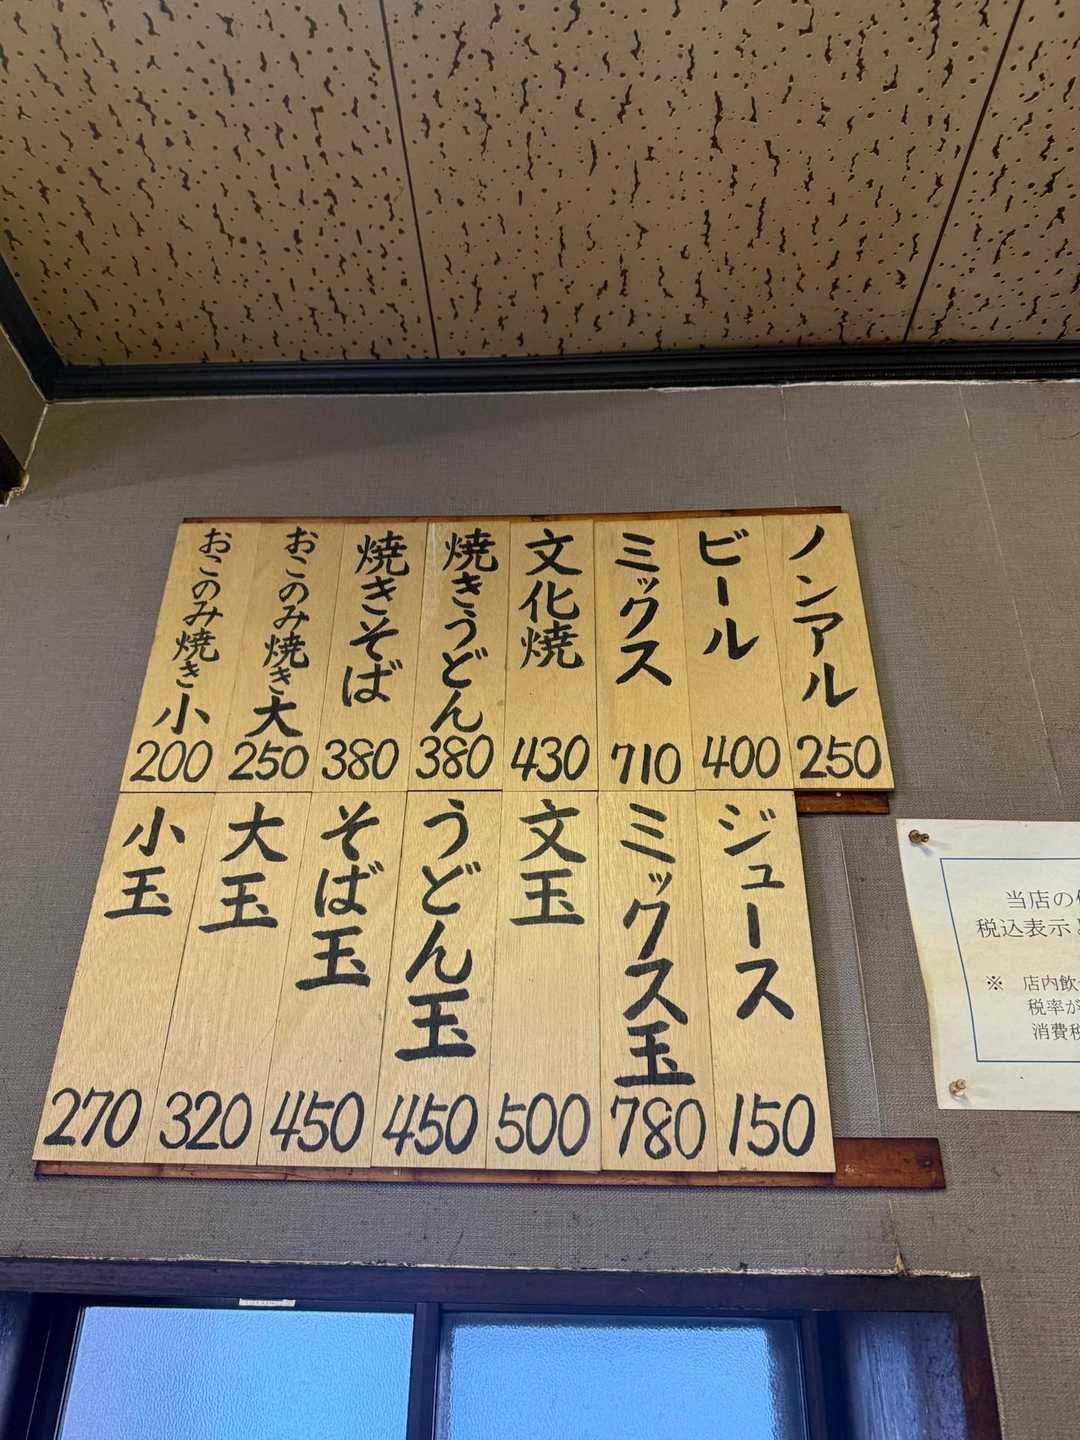 おこのみ焼き小
200
おこのみ焼き大
250
焼きそば
380
焼きうどん
380
文化焼
430
ミックス
710
ビール
400
ノンアル
250
小玉
270
大玉
320
そば玉
450
うどん玉
450
文玉
500
ミックス玉
780
ジュース
150
当店の
税込表示
※ 店内飲
税率が
消費税